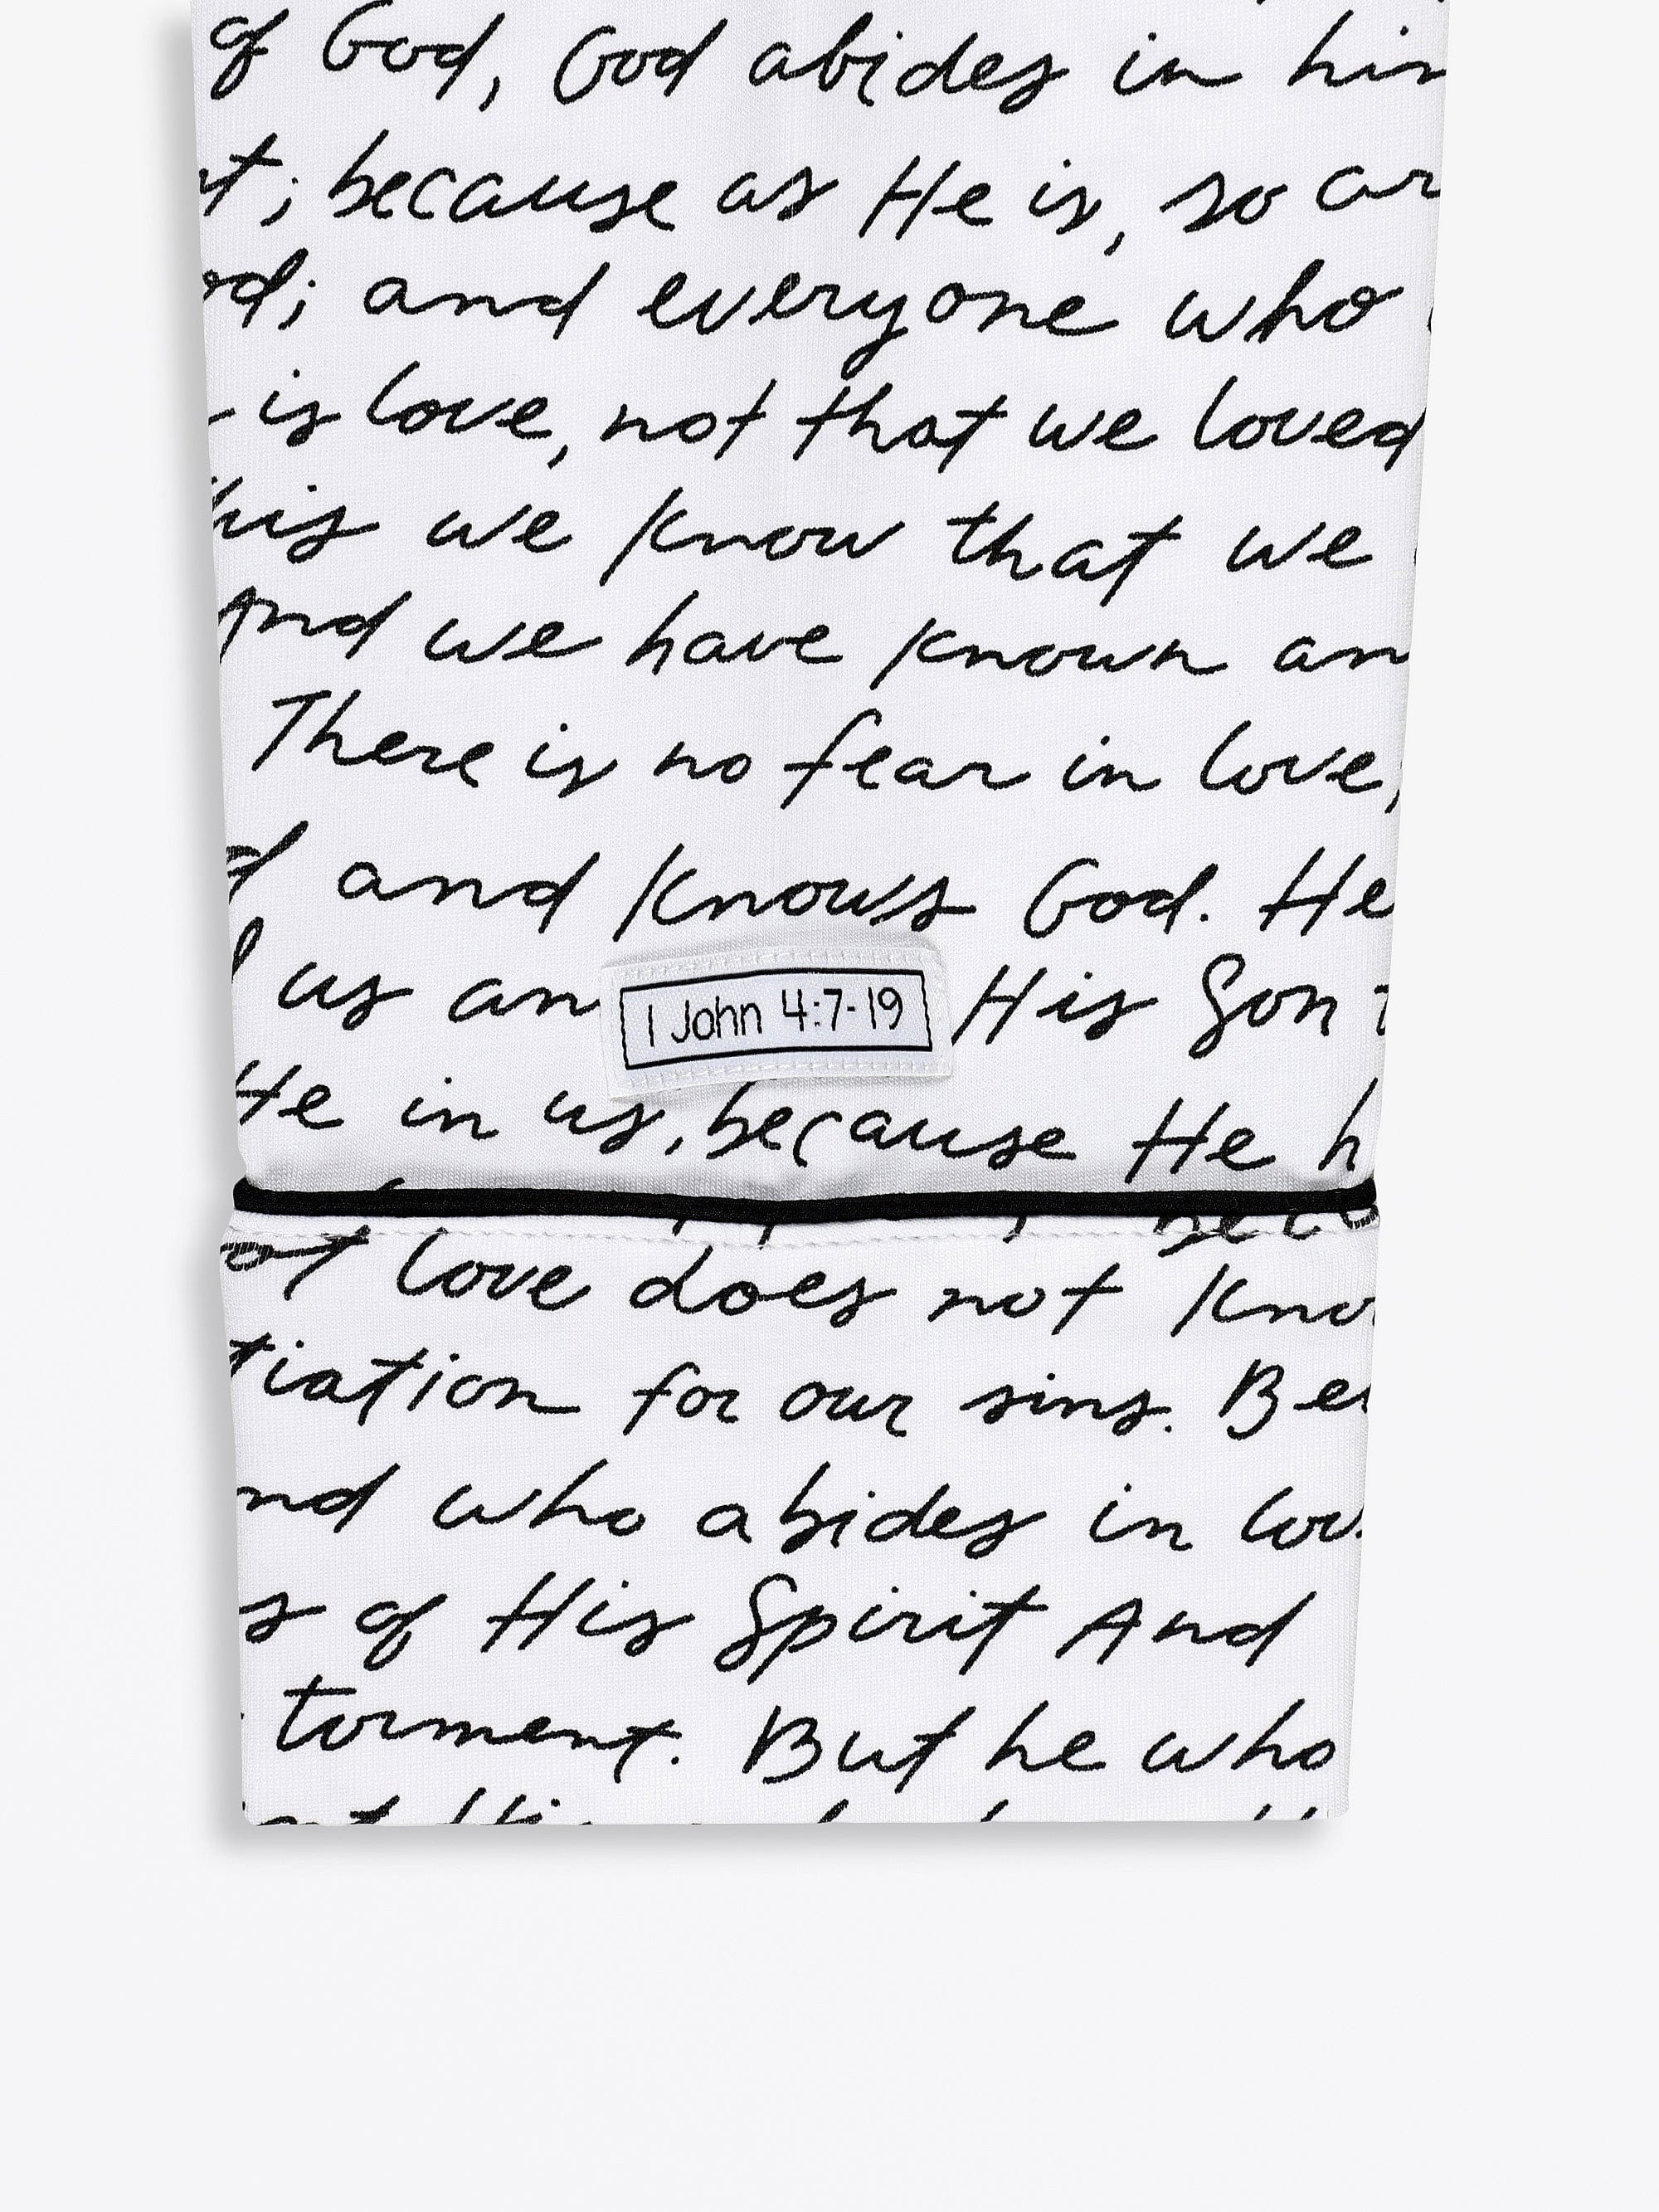 of God, God abides in him
; because as He is, so ar
; and everyone who
is love, not that we loved
his we know that we
And we have known an
There is no fear in love,
and knows God. He
us an His Son
1 John 4:7-19
He in us, because He h
ot love does not kno
tiation for our sins. Be
nd who abides in lov
s of His Spirit And
torment. But he who